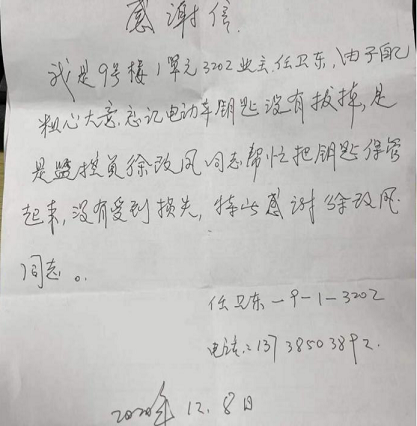 感谢信
我是9号楼1单元3202业主任卫东,由于自己
粗心大意,忘记电动车钥匙没有拔掉,是
是监控员徐改风同志帮忙把钥匙保管
起来,没有受到损失,特此感谢徐改风
同志。
任卫东-9-1-3202
电话:13738503892.
2020年12.8日